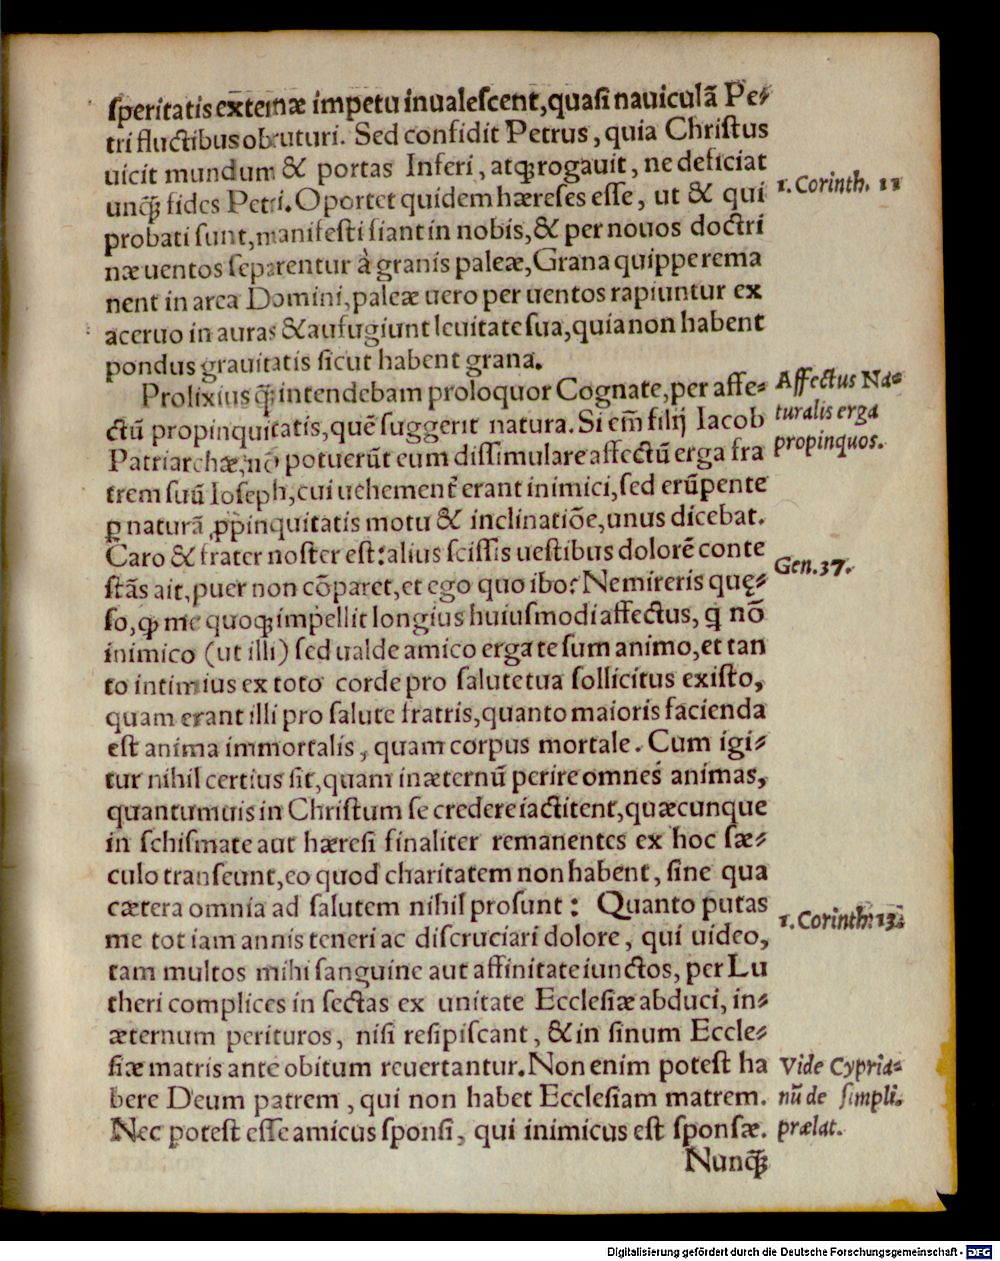 ſperitatis externæ impetu inualeſcent,quaſi nauiculã Pe⸗
tri fluctibus obruturi. Sed confidit Petrus, quia Chriſtus
uicit mundum & portas Inferi, atqꝫ rogauit, ne deficiat
unqꝫ̃ fides Petri. Oportet quidem hæreſes eſſe, ut & qui
1. Corinth. 11
probati ſunt,manifeſti fiant in nobis,& per nouos doctri
næ uentos ſeparentur à granis paleæ,Grana quippe rema
nent in area Domini,paleæ uero per uentos rapiuntur ex
aceruo in auras & aufugiunt leuitate ſua,quia non habent
pondus grauitatis ſicut habent grana.
Prolixius qꝫ̃ intendebam proloquor Cognate,per affe⸗
Affectus Na⸗
ctũ propinquitatis,quẽ ſuggerit natura. Si em̃ filij Iacob
turalis erga
Patriarchæ,nõ potuerũt eum diſſimulare affectũ erga fra
propinquos.
trem ſuũ Ioſeph,cui uehement̃ erant inimici,ſed erũpente
ꝑ naturã ꝓpinquitatis motu & inclinatiõe,unus dicebat.
Caro & frater noſter eſt:alius ſciſſis ueſtibus dolorẽ conte
Gen.37.
ſtãs ait,puer non cõparet,et ego quo ibo? Ne mireris quę⸗
ſo,ꝙ me quoqꝫ impellit longius huiuſmodi affectus, q̃ nõ
inimico (ut illi) ſed ualde amico erga te ſum animo,et tan
to intimius ex toto corde pro ſalute tua ſollicitus exiſto,
quam erant illi pro ſalute fratris,quanto maioris facienda
eſt anima immortalis, quam corpus mortale. Cum igi⸗
tur nihil certius ſit,quam inæternũ perire omnes animas,
quantumuis in Chriſtum ſe credere iactitent,quæcunque
in ſchiſmate aut hæreſi finaliter remanentes ex hoc ſæ⸗
culo tranſeunt,eo quod charitatem non habent, ſine qua
cætera omnia ad ſalutem nihil proſunt: Quanto putas
1. Corinth. 13.
me tot iam annis teneri ac diſcruciari dolore, qui uideo,
tam multos mihi ſanguine aut affinitate iunctos, per Lu
theri complices in ſectas ex unitate Eccleſiæ abduci, in⸗
æternum perituros, niſi reſipiſcant, & in ſinum Eccle⸗
ſiæ matris ante obitum reuertantur. Non enim poteſt ha
Vide Cypria⸗
bere Deum patrem, qui non habet Eccleſiam matrem.
nũ de ſimpli.
Nec poteſt eſſe amicus ſponſi, qui inimicus eſt ſponſæ.
prælat.
Nunqꝫ̃
Digitalisierung gefördert durch die Deutsche Forschungsgemeinschaft - DFG